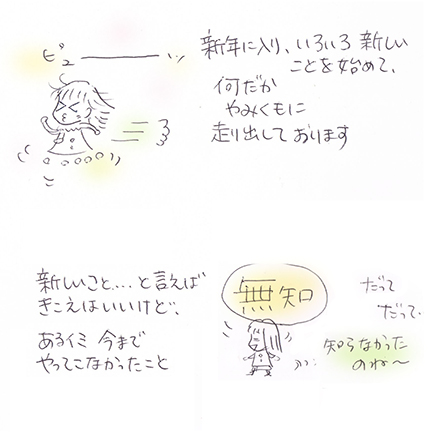 ピューーーーッ
新年に入り、いろいろ新しい
ことを始めて、
何だか
やみくもに
走り出しております
新しいこと‥‥と言えば
きこえはいいけど、
あるイミ 今まで
やってこなかったこと
無知
だって
だって、
知らなかった
のね〜